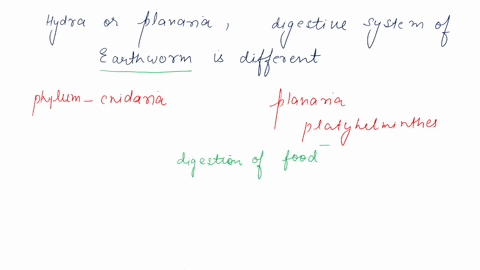 Hydra or planaria, digestive system of
Earthworm is different
phylum - cnidaria
planaria
platyhelminthes
digestion of food